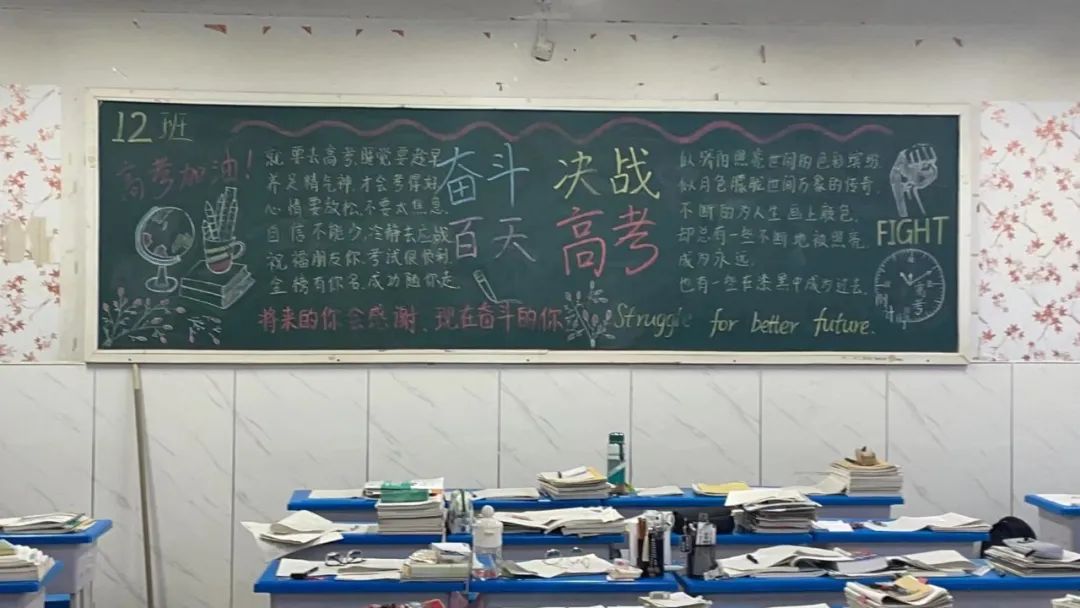 12班
高考加油!
就要去高考,睡觉要趁早
养足精气神,才会考得好
心情要放松,不要太焦急
自信不能少,冷静去应战
祝福朋友你,考试很顺利
金榜有你名,成功随你走
奋斗
百天
决战
高考
似骄阳照亮世间的色彩缤纷
似月色朦胧世间万象的传奇
不断的为人生画上颜色
却总有一些不断地被照亮
成为永远
也有一些在漆黑中成为过去
FIGHT
高考
将来的你会感谢、现在奋斗的你
Struggle for better future.